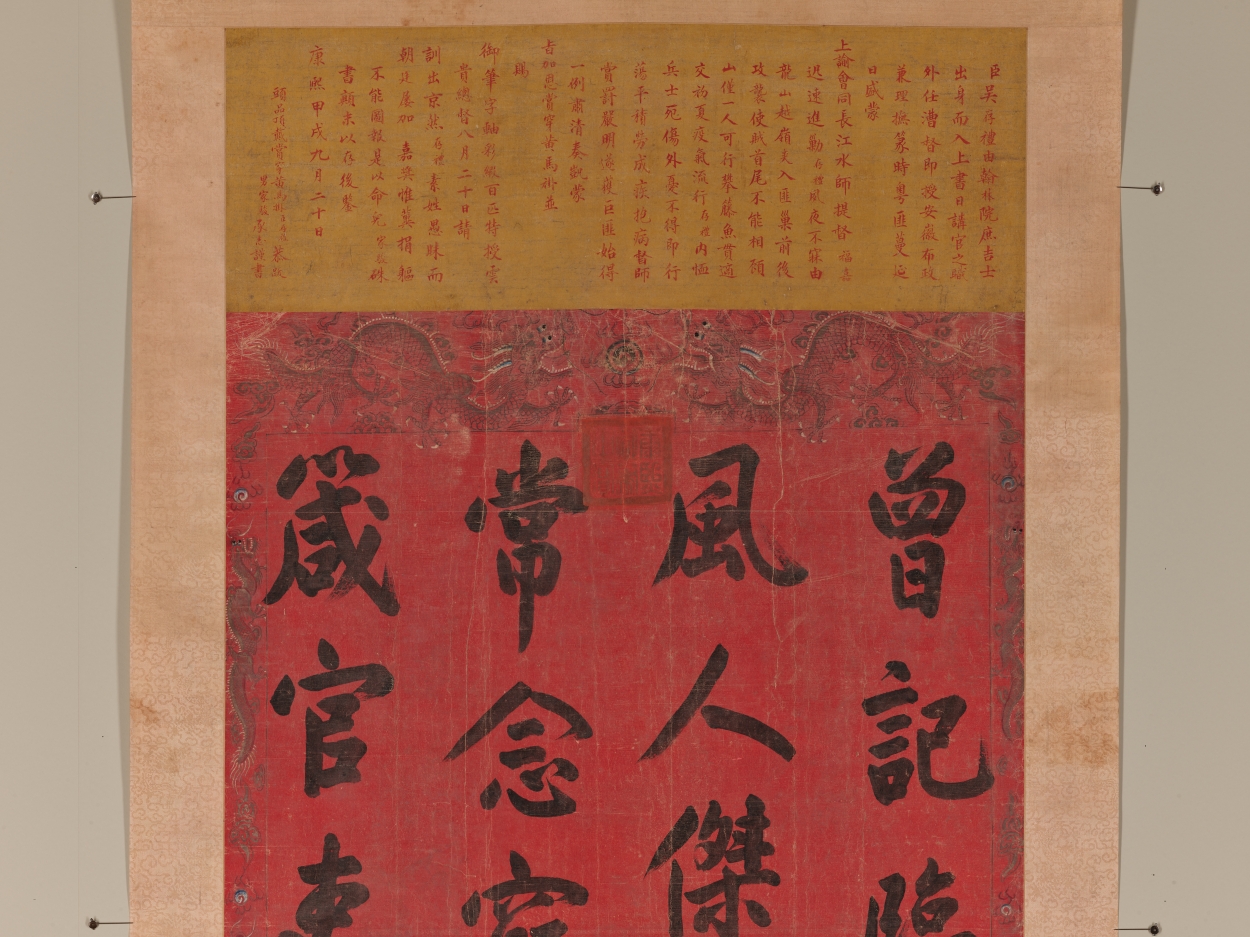 臣吳存禮由翰林院庶吉士
出身而入上書日講官之職
外任漕督即授安徽布政
兼理撫篆時粵匪蔓延
日盛蒙
上諭會同長江水師提督
迅速進勦存禮夙夜不寐由
攻襲使賊首尾不能相顧
龍山越嶺夾入匪巢前後
山僅一人可行攀藤魚貫適
交初夏疫氣流行存禮內恤
兵士死傷外憂不得即行
蕩平積勞成疾抱病督師
賞罰嚴明盪巨匪始得
一例肅清奏凱蒙
旨加恩賞穿黃馬掛並
賜
御筆字軸彩緞百匹特授雲
貴總督八月二十日請
訓出京然存禮素性愚昧而
朝廷屢加嘉奬惟冀捐軀
不能圖報是以命兒硃
書顛末以存後鑒
康熙甲戌九月二十日
頭品頂戴賞穿黃馬掛
曾記臨
風人傑
常念容
箴官